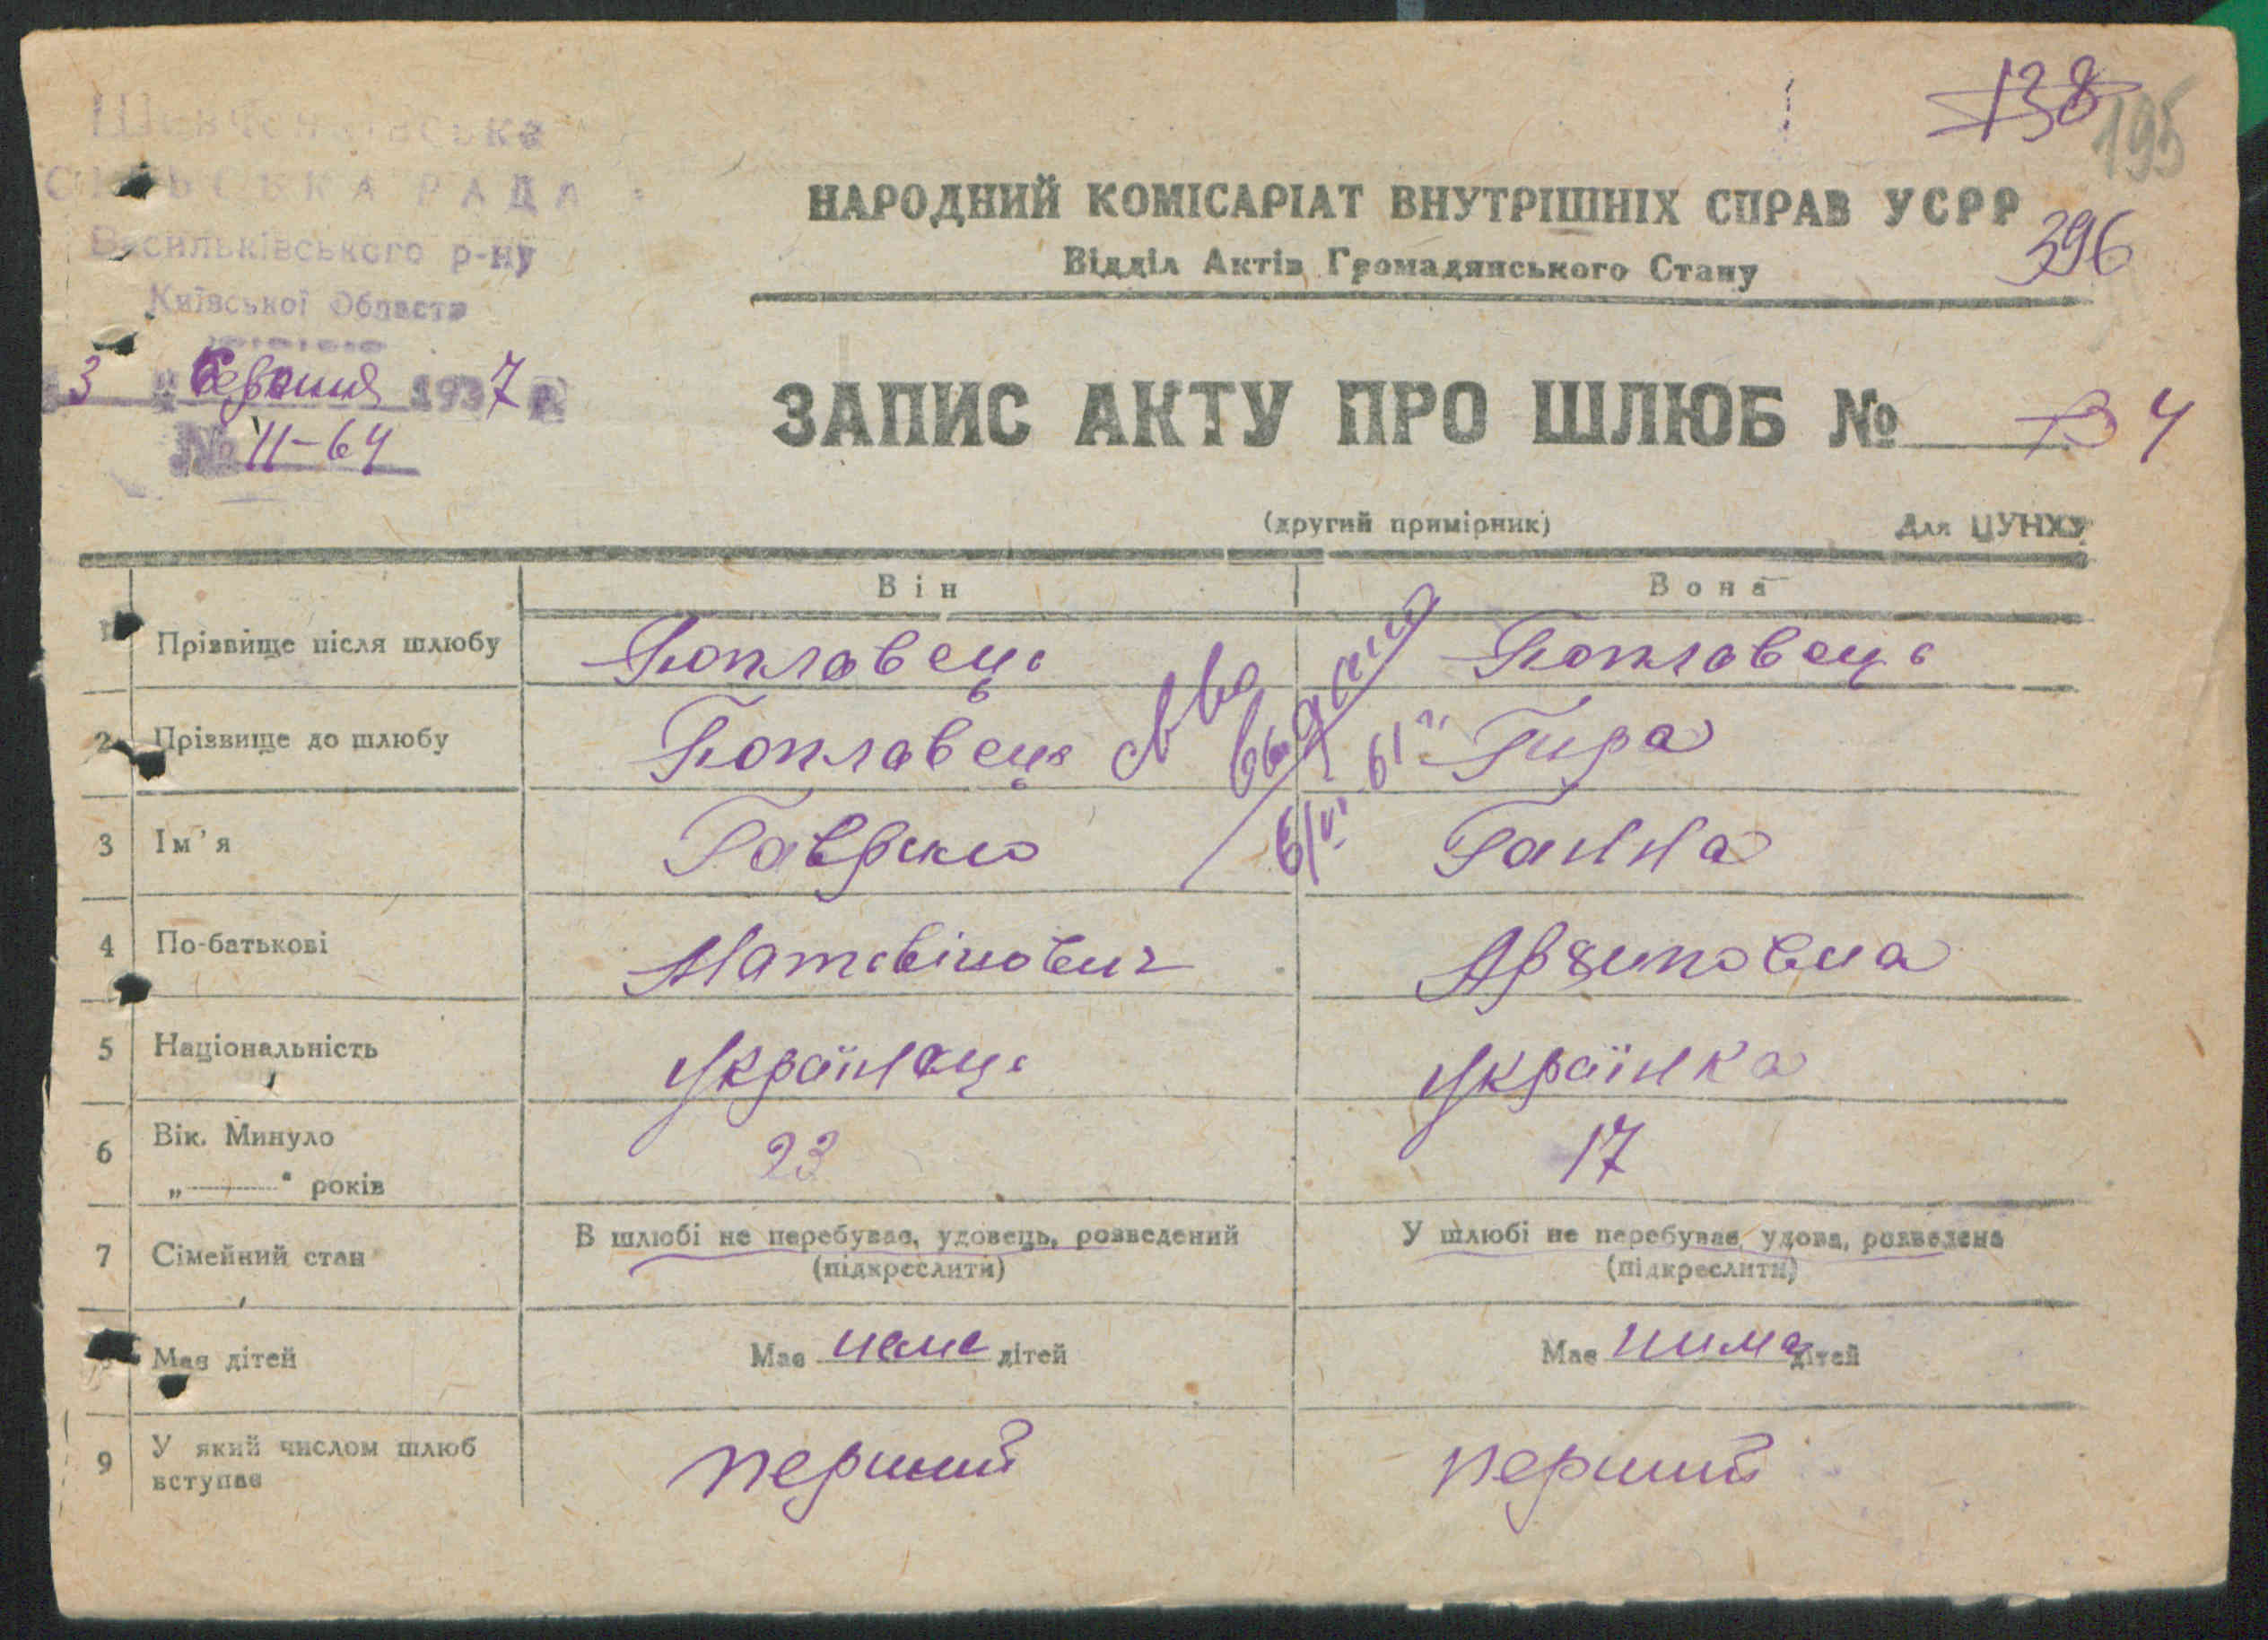 138
195
СІЛЬСЬКА РАДА
Васильківського р-ну
Київської Области
3 " Серпня 1937 р.
№ 11-64
НАРОДНИЙ КОМІСАРІАТ ВНУТРІШНІХ СПРАВ УСРР
396
Відділ Актів Громадянського Стану
ЗАПИС АКТУ ПРО ШЛЮБ № 13 4
(другий примірник) Для ЦУНХУ
Він Вона
1 Прізвище після шлюбу Поплавець Поплавець
2 Прізвище до шлюбу Поплавець Гира
св-во выдано 6/VI 61 г.
3 Ім'я Гаврило Ганна
4 По-батькові Матвійович Архиповна
5 Національність Українець Українка
6 Вік. Минуло
„ “ років 23 17
7 Сімейний стан В шлюбі не перебуває, удовець, розведений У шлюбі не перебуває, удова, розведена
(підкреслити) (підкреслити)
Має дітей Має нема дітей Має нима дітей
9 У який числом шлюб
вступає перший перший